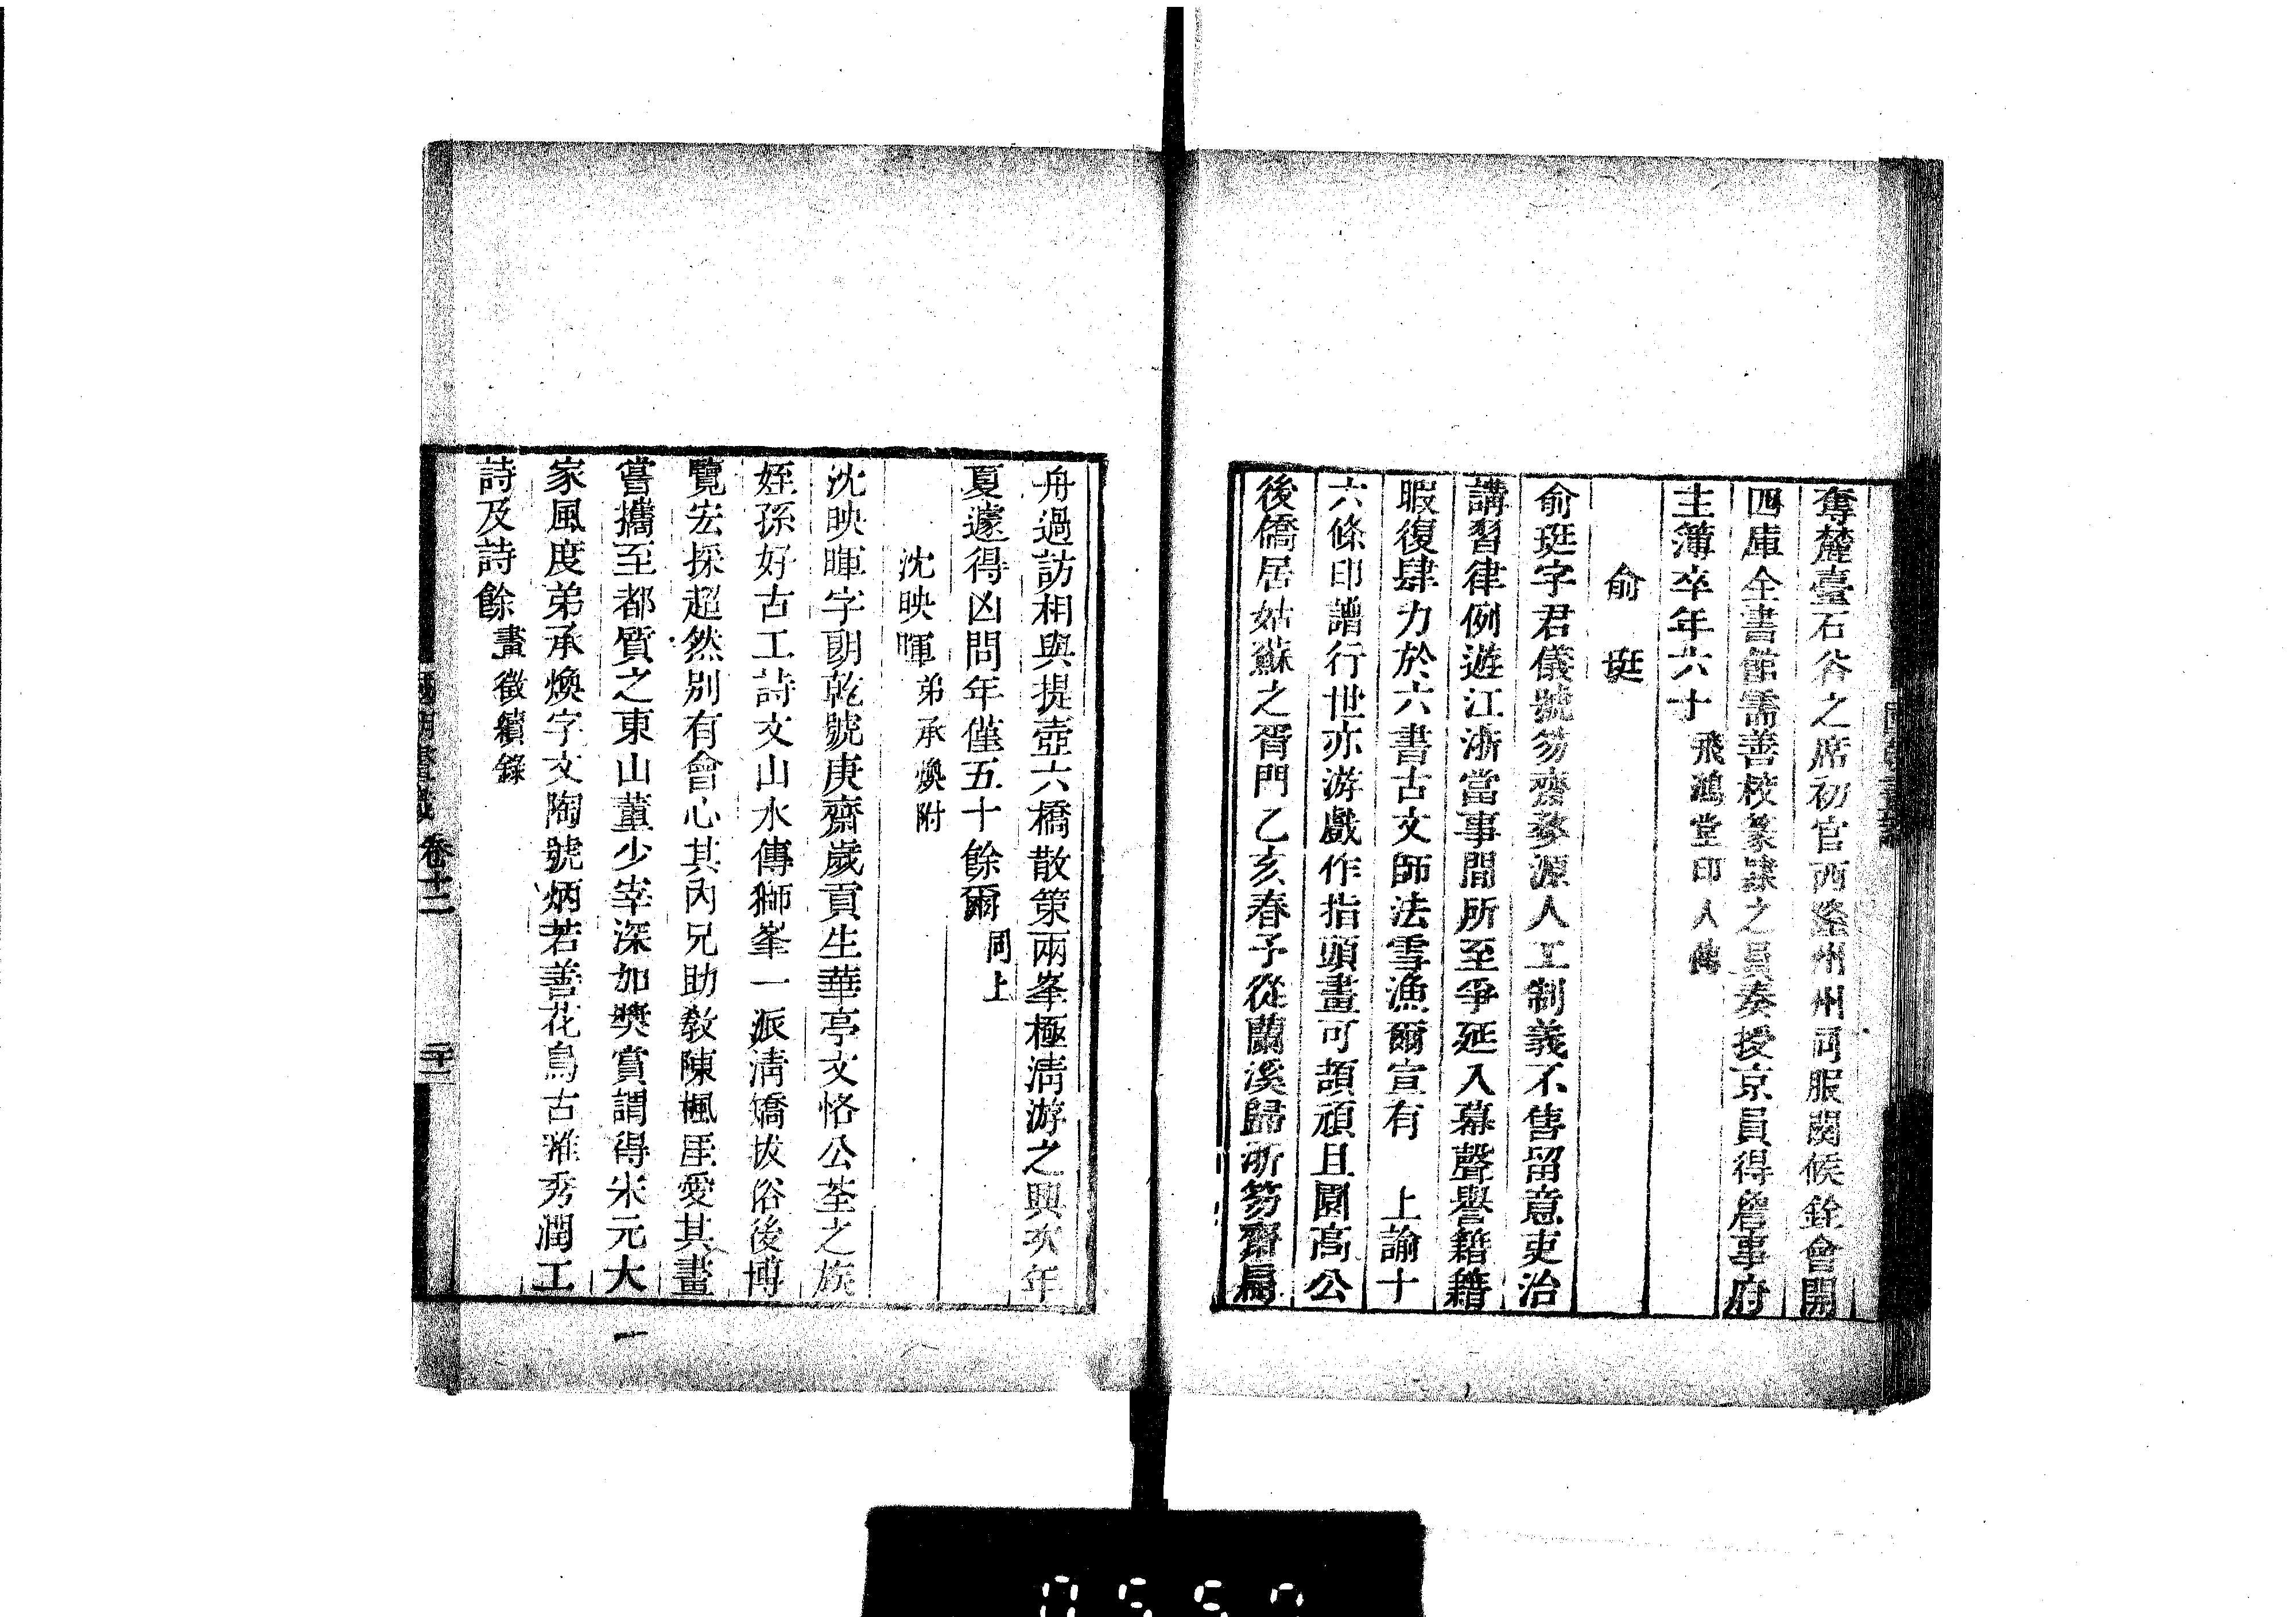 奪麓臺石谷之席初官西隆州州同服闋候銓會開
四庫全書館需善校篆隸之員奏授京員得詹事府
主簿卒年六十飛鴻堂印人傳
俞珽
俞珽字君儀號笏齋婺源人工制義不售留意吏治
講習律例遊江浙當事間所至爭延入幕聲譽籍籍
暇復肆力於六書古文師法雪漁爾宣有　上諭十
六條印譜行世亦游戲作指頭畫可頡頏且園高公
後僑居姑蘇之胥門乙亥春予從蘭溪歸浙笏齋扁
舟過訪相與提壺六橋散策兩峯極淸游之興次年
夏遽得凶問年僅五十餘爾同上
沈映暉弟承煥附
沈映暉字朗乾號庚齋歲貢生華亭文恪公荃之族
姪孫好古工詩文山水傳獅峯一派淸矯拔俗後博
覽宏採超然別有會心其內兄助敎陳楓厓愛其畫
嘗攜至都質之東山董少宰深加獎賞謂得宋元大
家風度弟承煥字文陶號炳若善花鳥古雅秀潤工
詩及詩餘畫徵續錄
卷十二
二十二